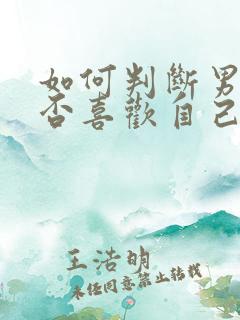 如何判斷男
否喜歡自己
王浩明
未經同意禁止轉載